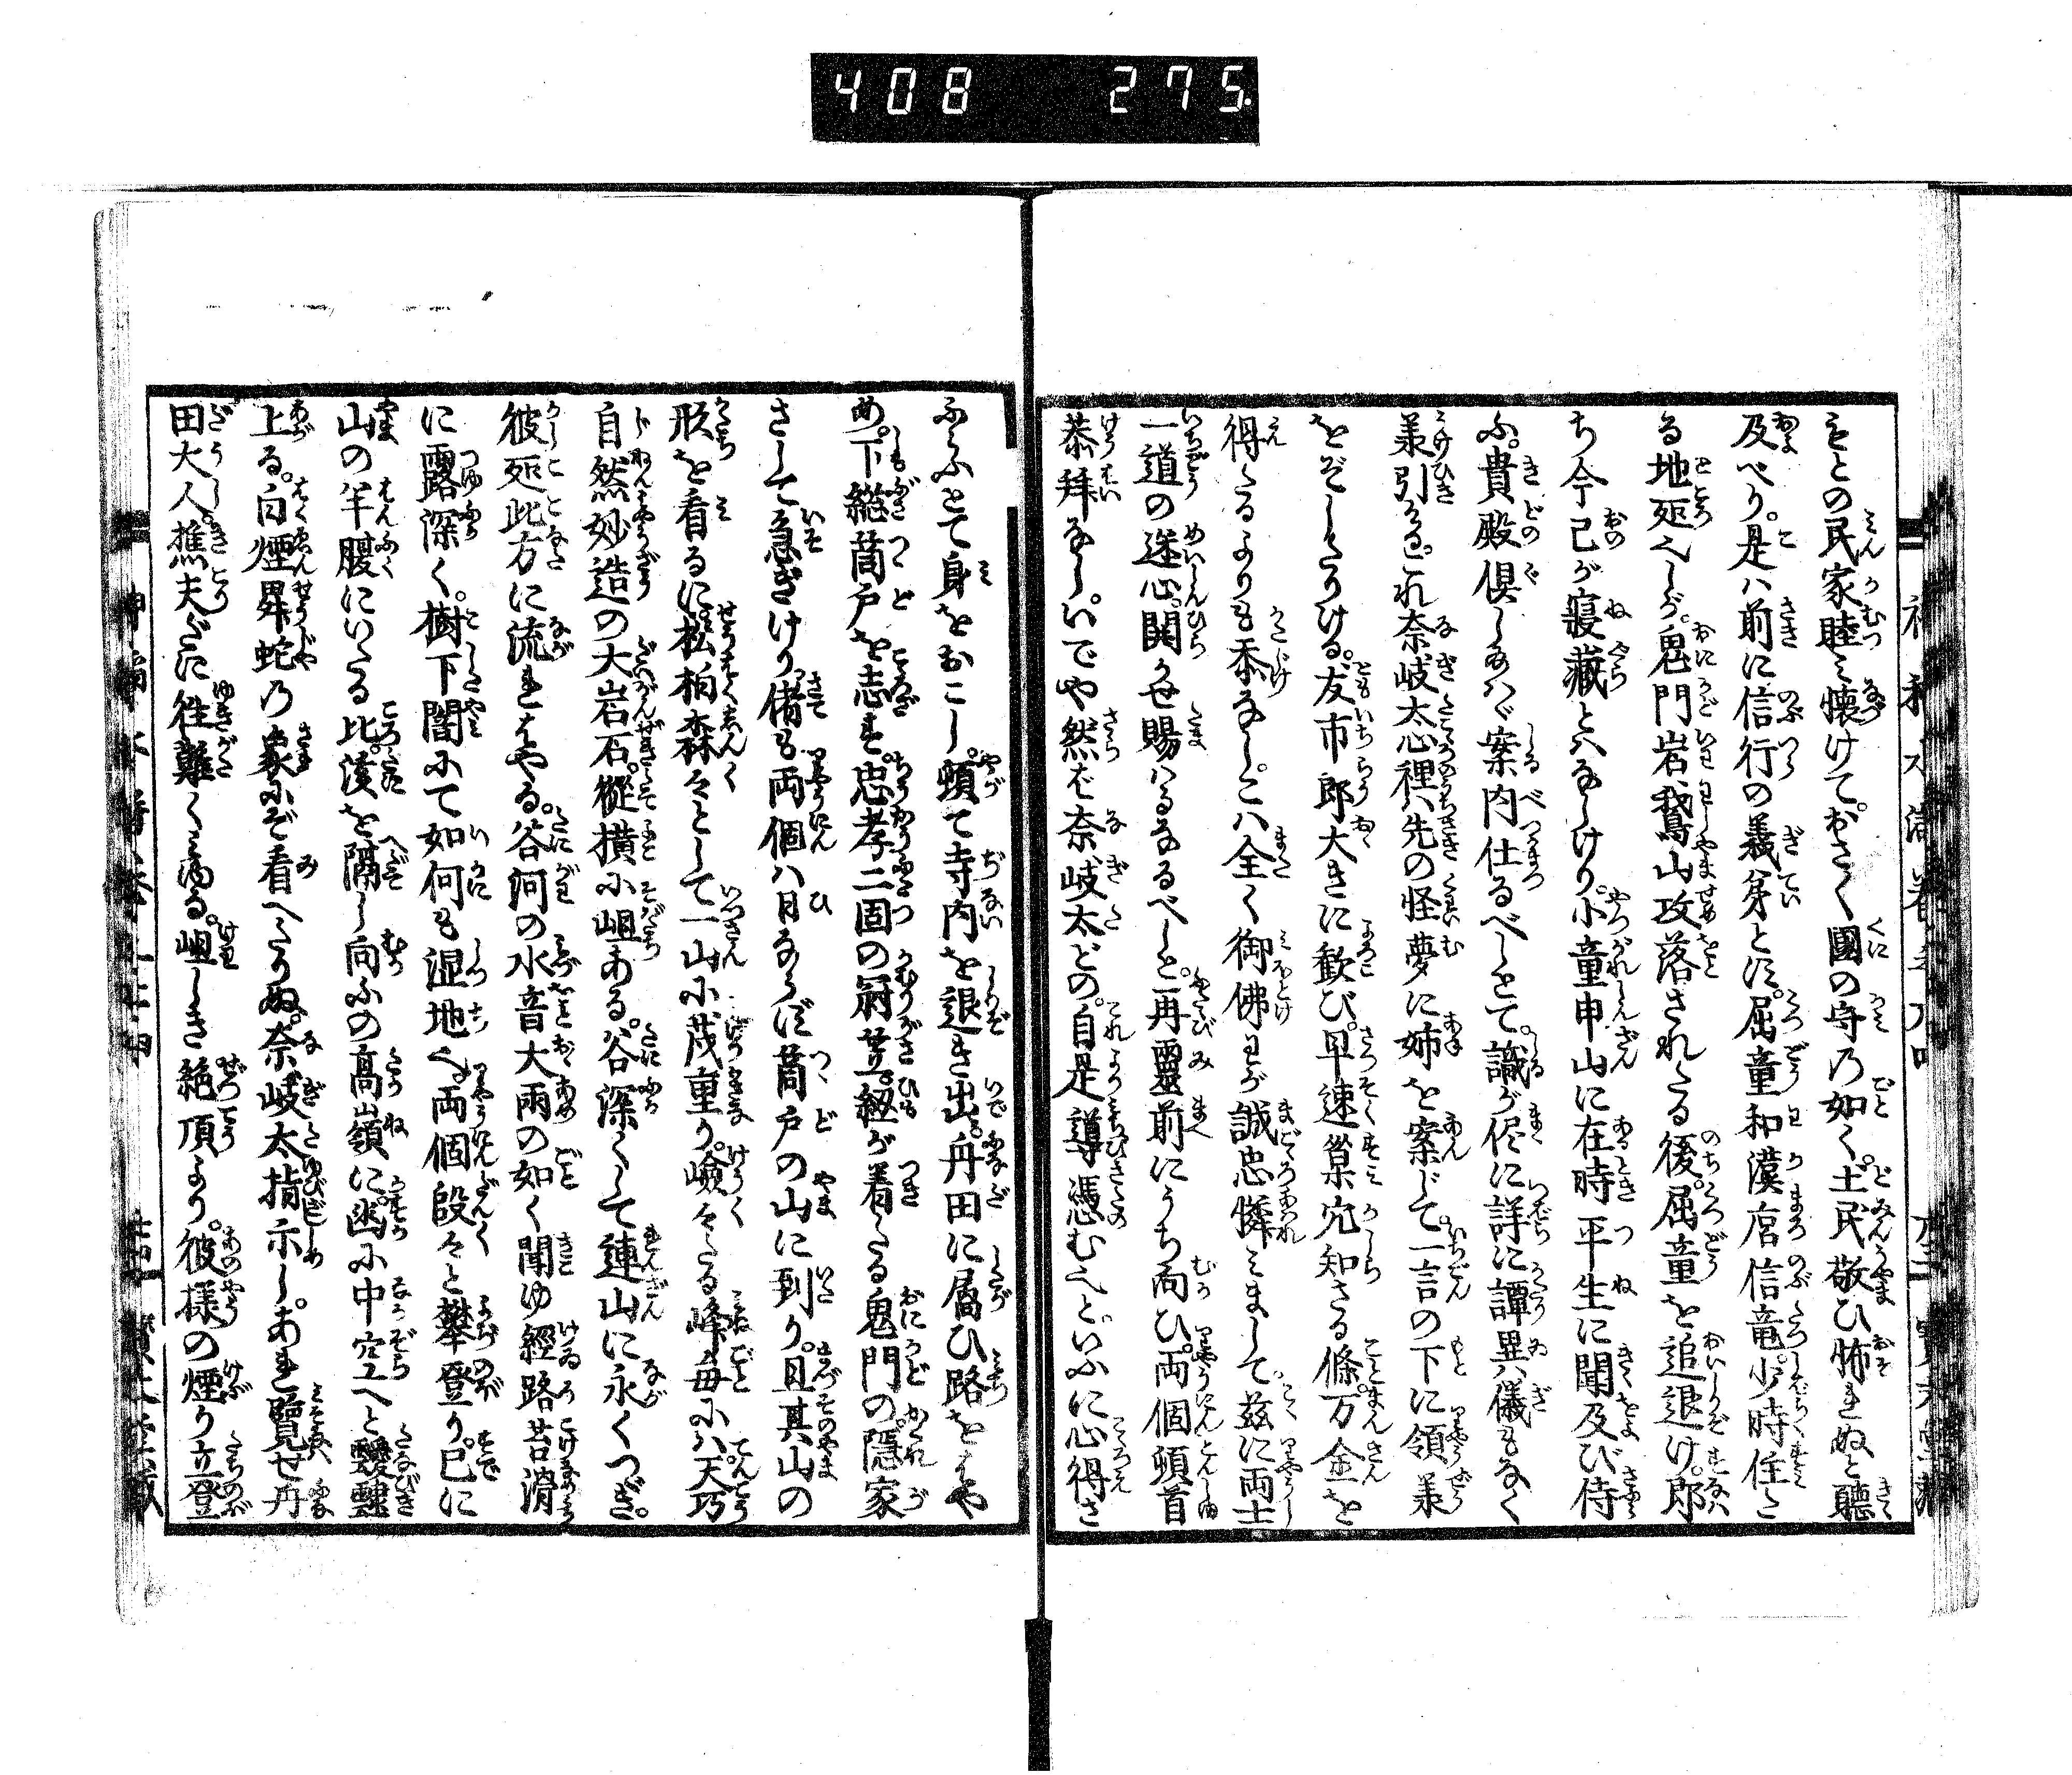 408 275
をとの民家睦み懐けて。おさ〳〵國の守の如く。土民敬ひ怖れぬと聽
及べり。是ハ前に信行の義弟とに。屈童和漢麿信竜。少時住さ
る地処へしが。鬼門岩鵞山攻落されたる後。屈童を追退け。郎
ち今己が寝藏とハなしけり。小童申山に在時平生に聞及び侍
ふ。貴殿倶し給ハヾ案内仕るべしとて。識が侭に詳に譚異ハ儀もなく
羕引るこれ奈岐太心裡ハ先の怪夢に姉を案じて。一言の下に領羕
をぞしたりける。友市郎大きに歓び。早速巢穴知さる條。万金を
得たるよりも忝なし。こハ全く御佛我が誠忠憐ミまして。茲に両士
一道の迷心。開かせ賜ハるなるべしと。再靈前にうち向ひ。両個頓首
恭拜なし。いでや然らバ奈岐太どの。自是導憑むへと。いふに心得さ
ふふとて身をおこし。頓て寺内を退き出。丹田に属ひ路をはや
め。下総莒戸を志さ。忠孝二固の冠笠。紐が着たる鬼門の隠家
さして急ぎけり。偖も両個ハ日ならに莒戸の山に到り。且其山の
形を看るに。松柏森々として一山に茂重り。嶮々たる峰毎にハ天巧
自然妙造の大岩石。縦横に岨ある。谷深くして連山に永くつぎ。
彼処此方に流はやる。谷河の水音大雨の如く聞ゆ經路苔滑
に露深く。樹下闇にて如何も湿地へ。両個段々と攀登り。已に
山の半腹にいたる比。渓を隔し向ふの高嶺に。幽に中空へと靉靆
上る。白煙昇蛇の象にぞ看へたりぬ。奈岐太指示し。あれ覽せ丹
田大人。樵夫だに徃難く見ゆる。岨しき絶頂より。彼樣の煙り立登